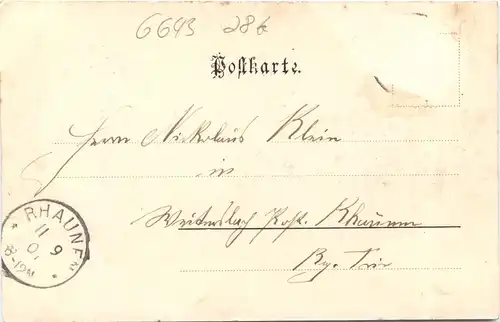 6643 286
Postkarte.
Herrn Nickolaus Klein
in
Weitersbach Post. Rhaunen
Bz. Trier
RHAUNEN
11 9
01
8-9 N.